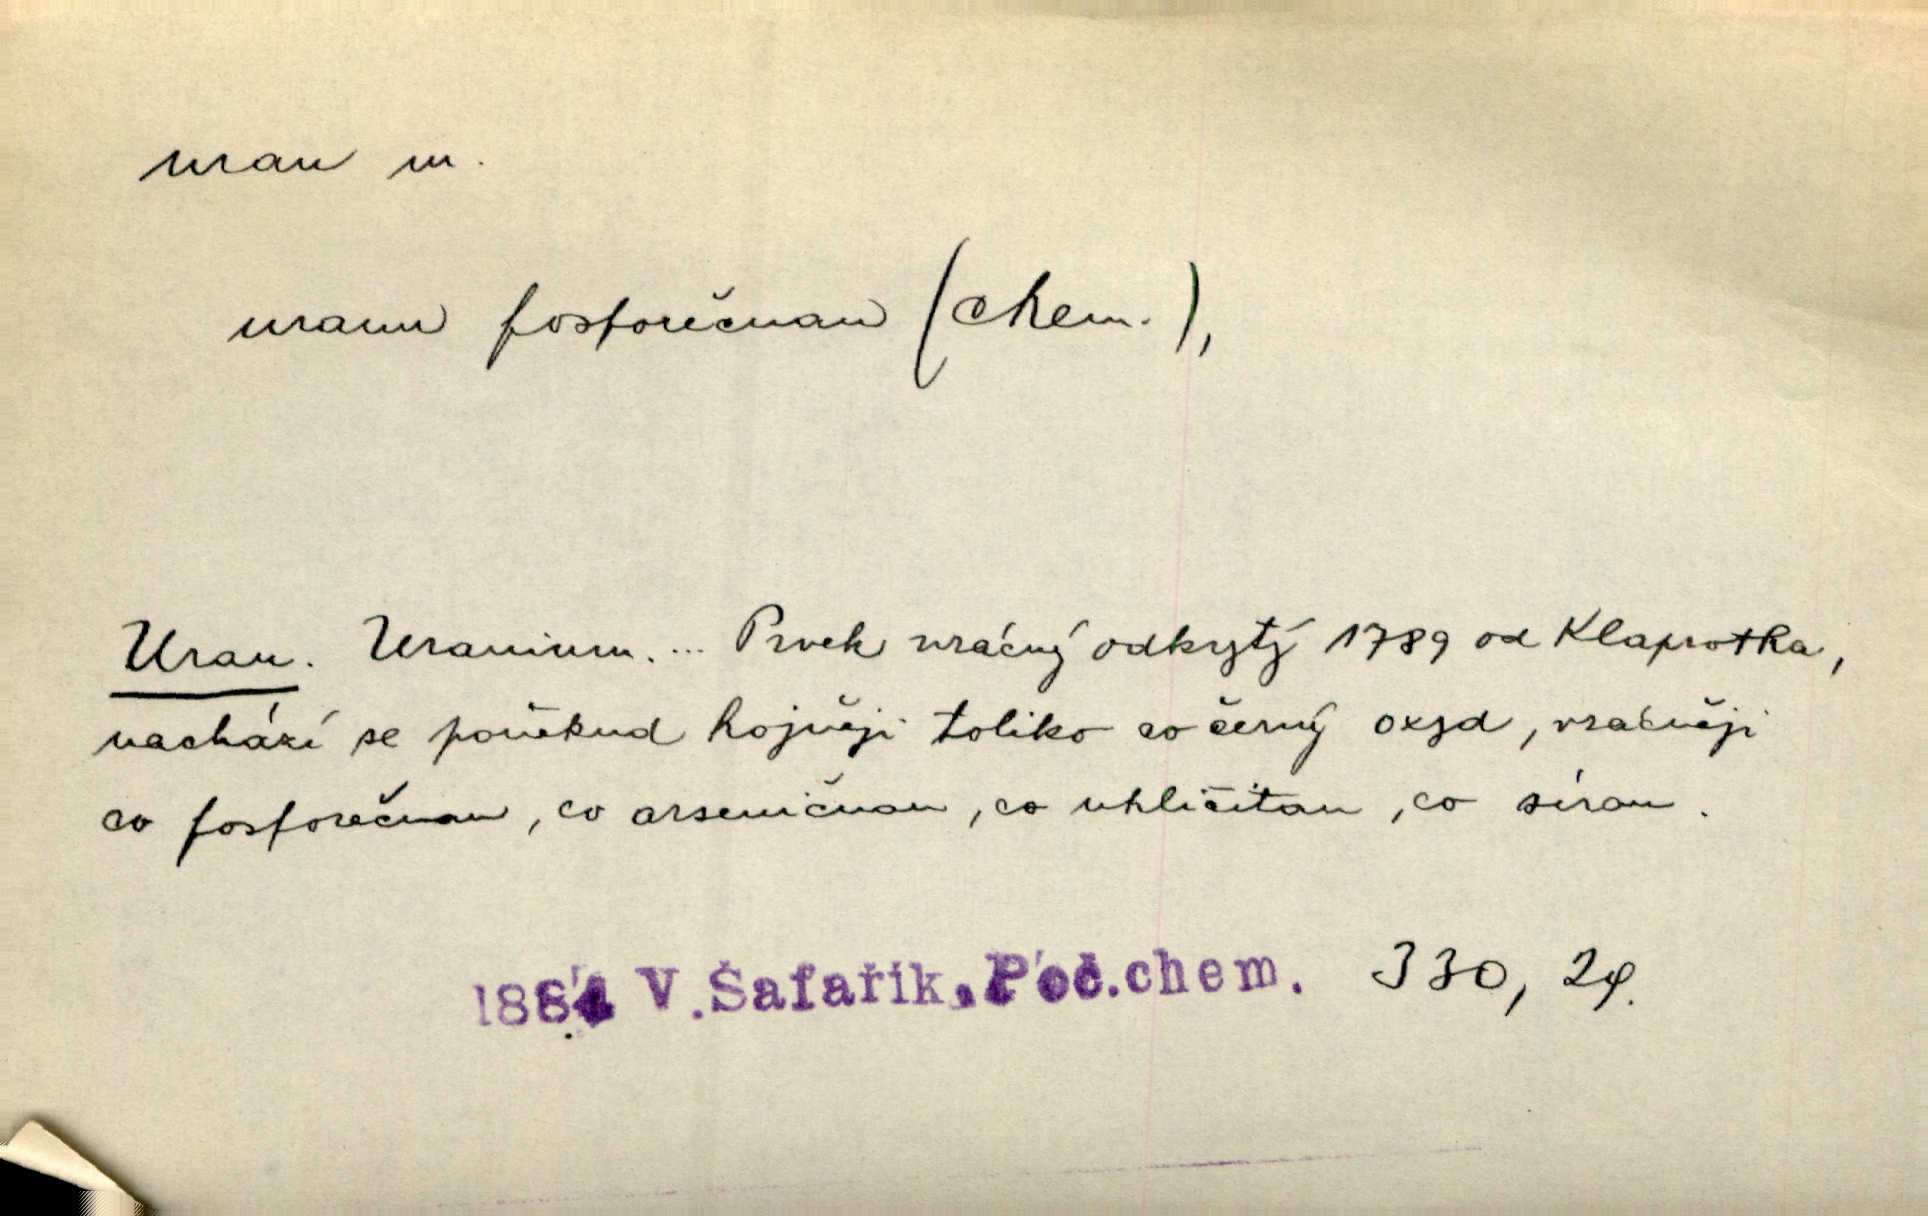 uran m.
uranu fosforečnan (chem.),
Uran. Uranium. ... Prvek vzácný odkrytý 1789 od Klaprotha,
nachází se poněkud hojněji toliko co černý oxyd, vzácněji
co fosforečnan, co arseničnan, co uhličitan, co síran.
V. Šafařík, Poč. chem. 330, 2φ.